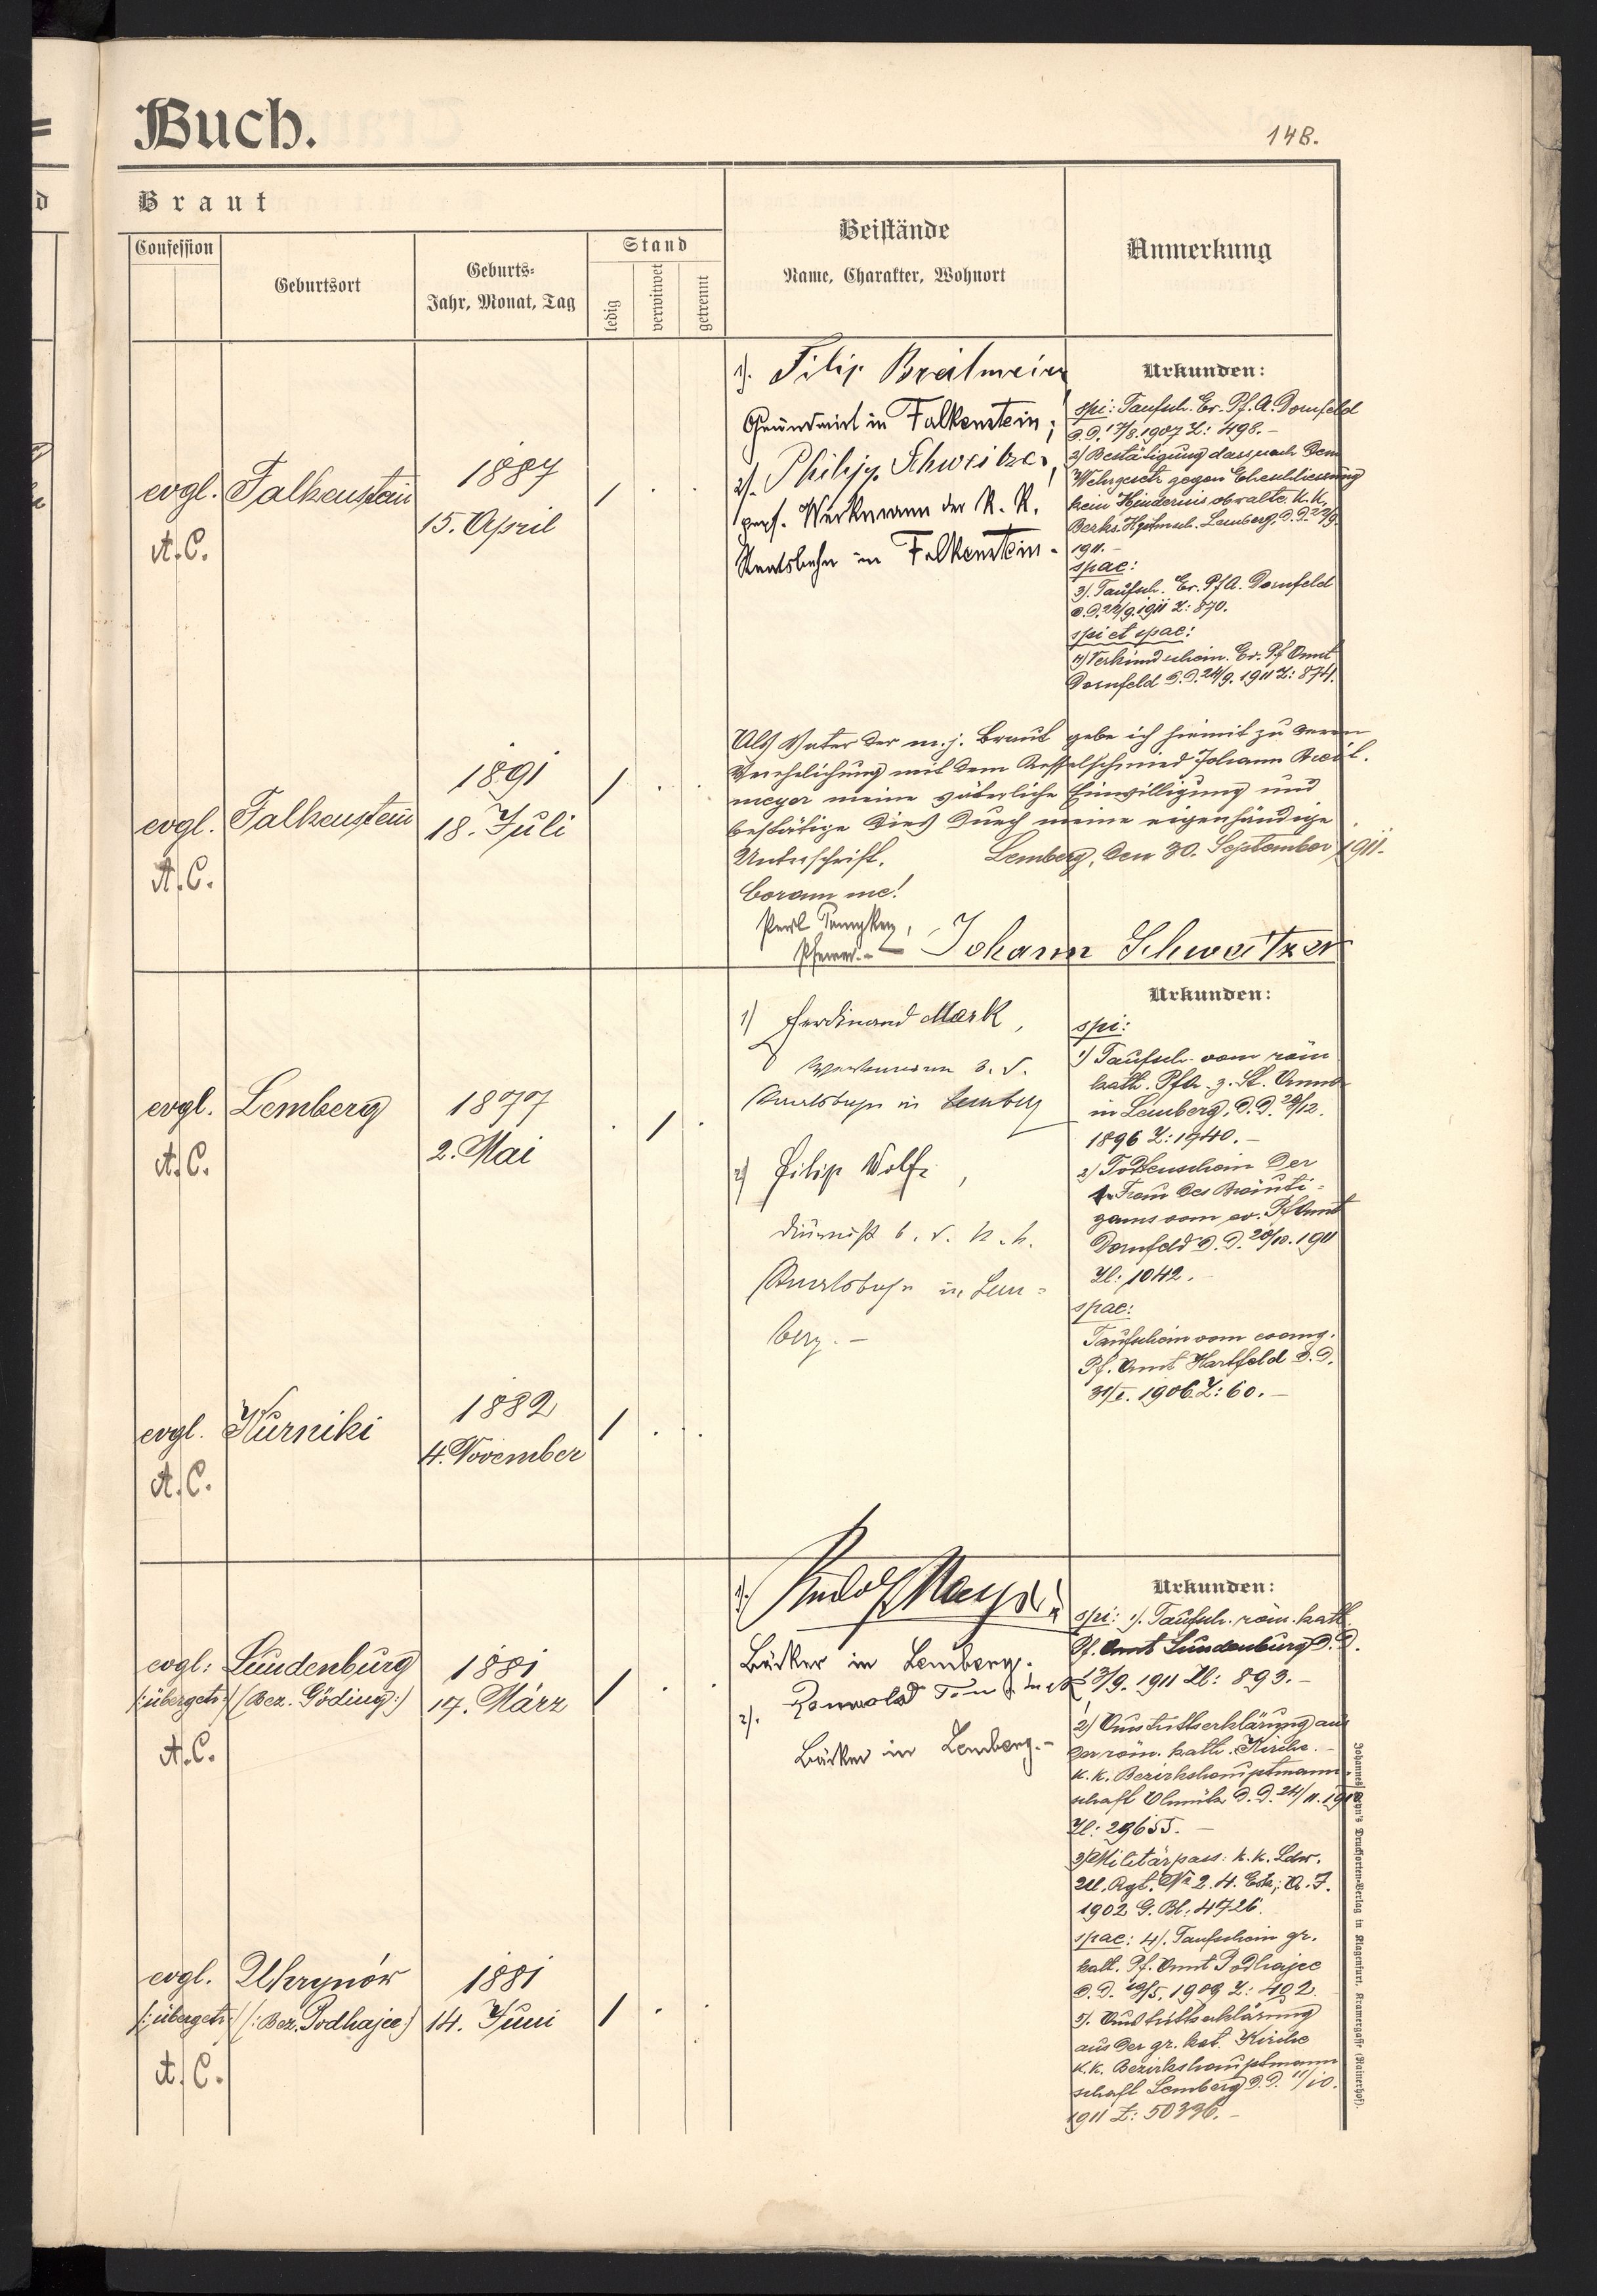 Buch.
148.
Braut
Confession
Geburtsort
Geburts-
Jahr, Monat, Tag
Stand
ledig
verwitwet
getrennt
Beistände
Name, Charakter, Wohnort
Anmerkung
evgl.
A. C.
Falkenstein
1887
15. April
/ . .
1). Filip Breitmeier
Grundwirt in Falkenstein;
2). Philipp Schweitzer,
Werkmann der K. K.
Staatsbahn in Falkenstein.
Urkunden:
spi: Taufsch. Ev. Pf. A. Dornfeld
d. d. 17/8. 1907 Z: 498. -
2) Bestätigung dass nach dem
Wehrgesetz gegen Eheschliessung
kein Hindernis obwalte. K. K.
Bezks. Hptmsch. Lemberg. d. d. 22/9.
1911. -
spae:
3). Taufsch. Ev. Pf A. Dornfeld
d. d. 22/9. 1911 Z: 870.
spi et spae:
4) Verkündschein. Ev. Pf Amt
Dornfeld d. d. 24/9. 1911 Z: 874.
evgl.
A. C.
Falkenstein
1891
18. Juli
/ . .
Als Vater der m. j. Braut gebe ich hiemit zu deren
Verehelichung mit dem Kesselschmied Johann Breit-
meyer meine väterliche Einwilligung und
bestätige dies durch meine eigenhändige
Unterschrift. Lemberg, den 30. September 1911.
Coram me!
Pfarrer. -
Johann Schweitzer
evgl.
A. C.
Lemberg
1877
2. Mai
. / .
1) Ferdinand Mark,
Werkmann d. k.
Staatsbahn in Lemberg
2) Filip Wolf,
Diurnist b. d. k. k.
Staatsbahn in Lem-
berg. -
Urkunden:
spi:
1) Taufsch. vom röm
kath. PfA. z. St. Anna
in Lemberg, d. d. 29/12.
1896 Z: 1940. -
2) Todtenschein der
1. Frau des Bräuti-
gams vom ev. Pf Amt
Dornfeld d. d. 20/10. 1911
Zl: 1042. -
spae:
Taufschein vom evang.
Pf. Amt Hartfeld d. d.
31/I. 1906. Z: 60. -
evgl.
A. C.
Kurniki
1882
4. November
/ . .
evgl:
/:übergetr:/
A. C.
Lundenburg
(Bez. Göding:)
1881
17. März
/ . .
1). Rudolf Mayer
Bäcker in Lemberg.
2). Romuald
Bäcker in Lemberg. -
Urkunden:
spi: 1). Taufsch. röm. kath
Pf. Amt Lundenburg d. d.
13/9. 1911 Zl: 893. -
2) Austrittserklärung aus
der röm. kath. Kirche. -
K. K. Bezirkshauptmann-
schaft Olmütz d. d. 24/11. 1910
Zl: 29655. -
3) Militärpass: k. k. Ldw.
Ul. Rgt. No 2. 4. Esk; A. J.
1902 G. Bl: 4726.
spae: 4). Taufschein gr.
kath. Pf. Amt Podhajce
d. d. 19/5. 1909 Z: 402.
5). Austrittserklärung
aus der gr. kat. Kirche
K. K. Bezirkshauptmann
schaft Lemberg d. d. 11/10.
1911 Z: 50396. -
evgl.
/:übergetr:/
A. C.
Uhrynów
(:Bez. Podhajce)
1881
14. Juni
/ . .
Johannes Heyn's Drucksorten-Verlag in Klagenfurt, Kramergasse (Rainerhof).